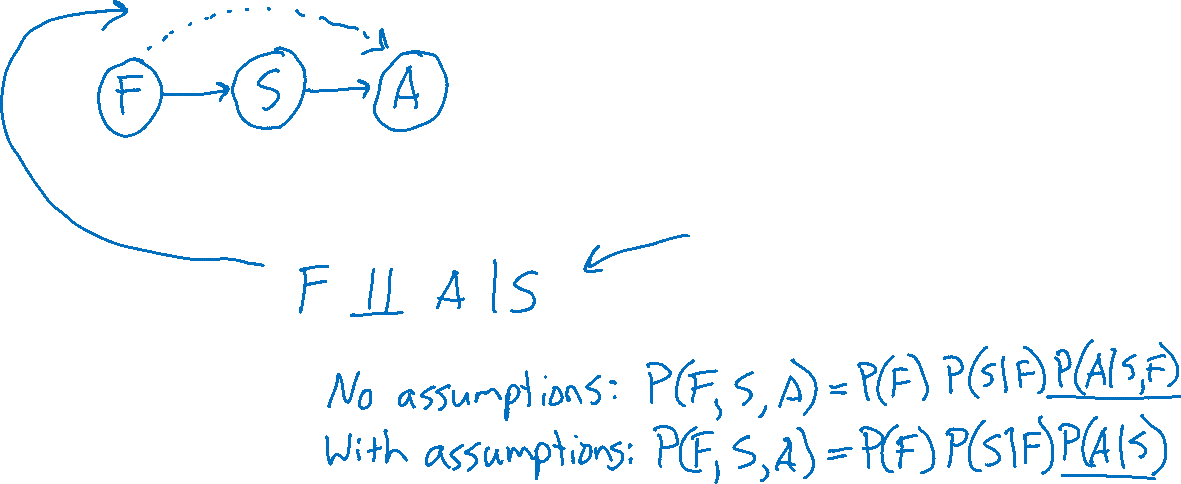 F S A
F ⫫ A | S
No assumptions: P(F, S, A) = P(F) P(S|F) P(A|S,F)
With assumptions: P(F, S, A) = P(F) P(S|F) P(A|S)